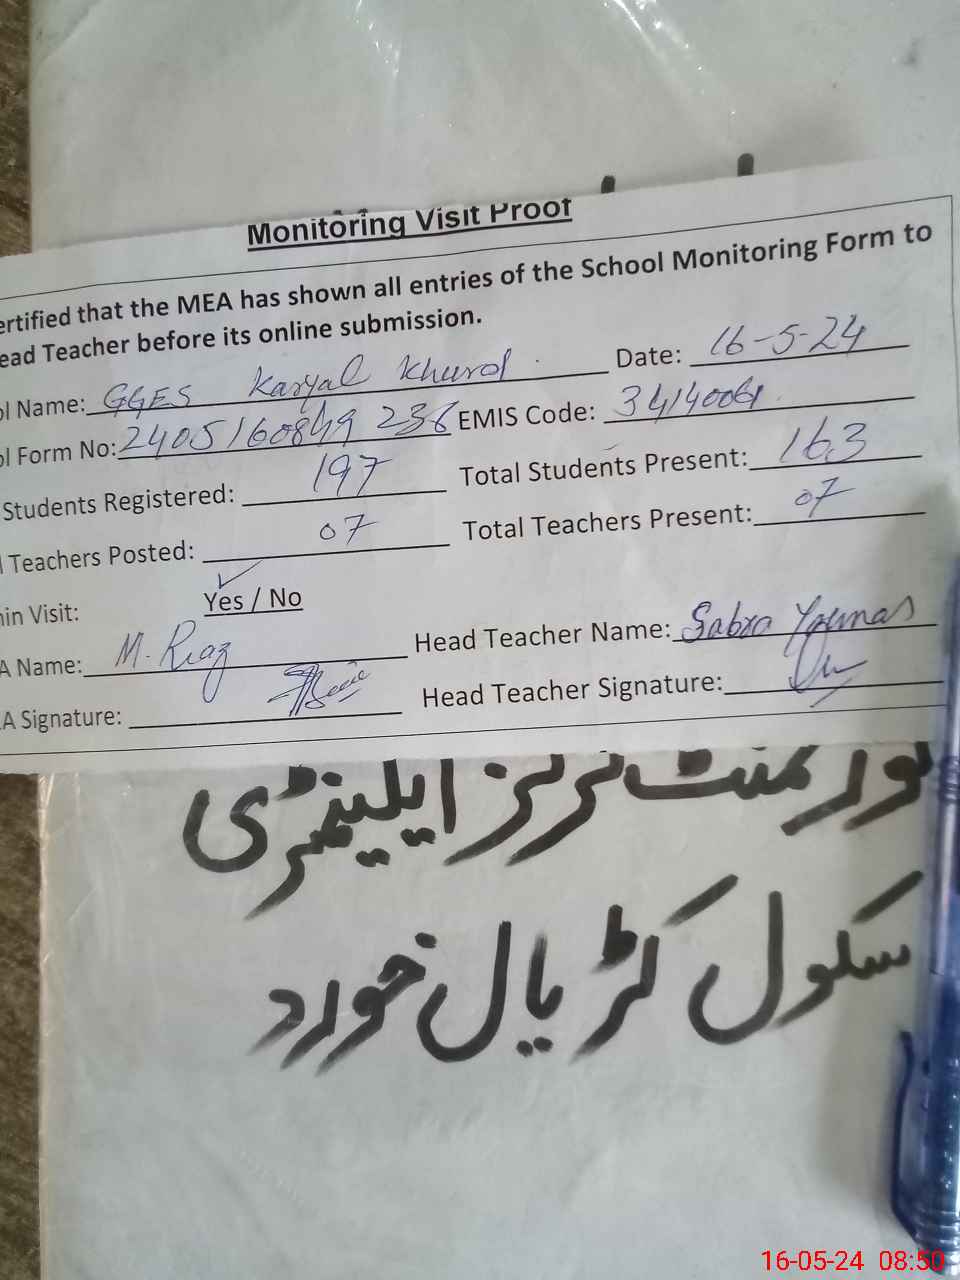 Monitoring Visit Proof
ertified that the MEA has shown all entries of the School Monitoring Form to
ead Teacher before its online submission.
ol Name: GGES Karyal Khurd Date: 16-5-24
ol Form No: 2405160849236 EMIS Code:
Students Registered: 197 Total Students Present: 163
l Teachers Posted: 07 Total Teachers Present: 07
in Visit: Yes / No
A Name: M. Riaz Head Teacher Name: Sabra Younas
A Signature: Head Teacher Signature:
گورنمنٹ گرلز ایلیمنٹری
سکول کڑیال خورد
16-05-24 08:50